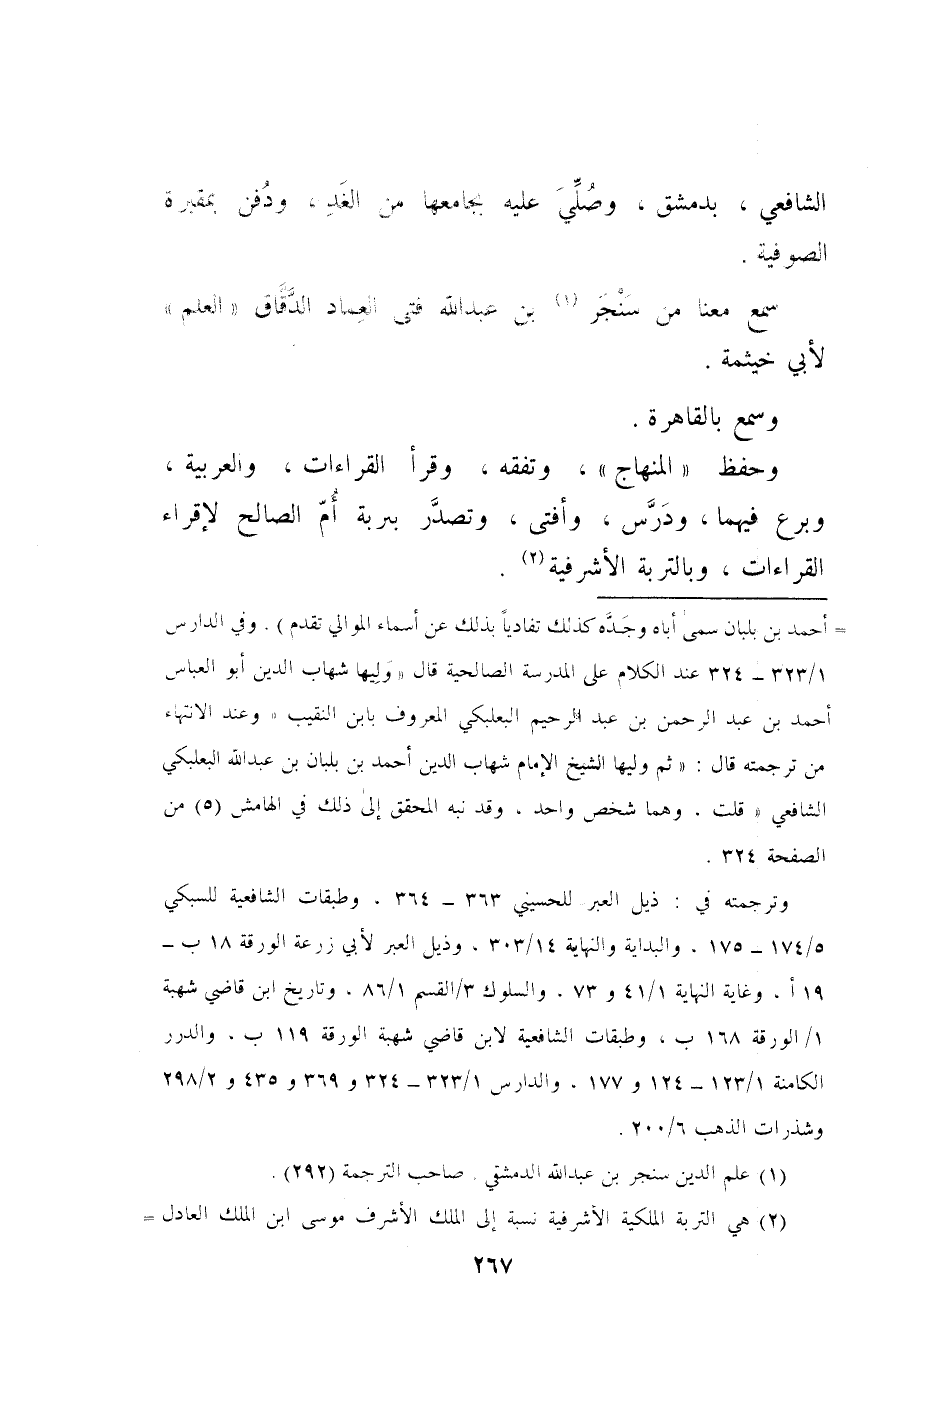 الشافعي ، بدمشق ، وصُلِّيَ عليه بجامعها من الغَدِ ، ودُفن بمقبرة
الصوفية .
سمع معنا من سَنْجَرَ (١) بن عبدالله فتى العِماد الدَّقَّاق « العلم »
لأبي خيثمة .
وسمع بالقاهرة .
وحفظ « المنهاج » ، وتفقه ، وقرأ القراءات ، والعربية ،
وبرع فيهما ، ودَرَّس ، وأفتى ، وتصدَّر بتربة أُمّ الصالح لإقراء
القراءات ، وبالتربة الأشرفية (٢) .
= أحمد بن بلبان سمى أباه وجَدَّه كذلك تفادياً بذلك عن أسماء الموالي تقدم ) . وفي الدارس
٣٢٣/١ ــ ٣٢٤ عند الكلام على المدرسة الصالحية قال « وَلِيها شهاب الدين أبو العباس
أحمد بن عبد الرحمن بن عبد الرحيم البعلبكي المعروف بابن النقيب » وعند الانتهاء
من ترجمته قال : « ثم وليها الشيخ الإمام شهاب الدين أحمد بن بلبان بن عبدالله البعلبكي
الشافعي » قلت . وهما شخص واحد . وقد نبه المحقق إلى ذلك في الهامش (٥) من
الصفحة ٣٢٤ .
وترجمته في : ذيل العبر للحسيني ٣٦٣ ــ ٣٦٤ . وطبقات الشافعية للسبكي
١٧٤/٥ ــ ١٧٥ . والبداية والنهاية ٣٠٣/١٤ . وذيل العبر لأبي زرعة الورقة ١٨ ب ــ
١٩ أ . وغاية النهاية ٤١/١ و ٧٣ . والسلوك ٣/القسم ٨٦/١ . وتاريخ ابن قاضي شهبة
١/ الورقة ١٦٨ ب ، وطبقات الشافعية لابن قاضي شهبة الورقة ١١٩ ب . والدرر
الكامنة ١٢٣/١ ــ ١٢٤ و ١٧٧ . والدارس ٣٢٣/١ ــ ٣٢٤ و ٣٦٩ و ٤٣٥ و ٢٩٨/٢
وشذرات الذهب ٢٠٠/٦ .
(١) علم الدين سنجر بن عبدالله الدمشقي . صاحب الترجمة (٢٩٢) .
(٢) هي التربة الملكية الأشرفية نسبة إلى الملك الأشرف موسى ابن الملك العادل =
٢٦٧